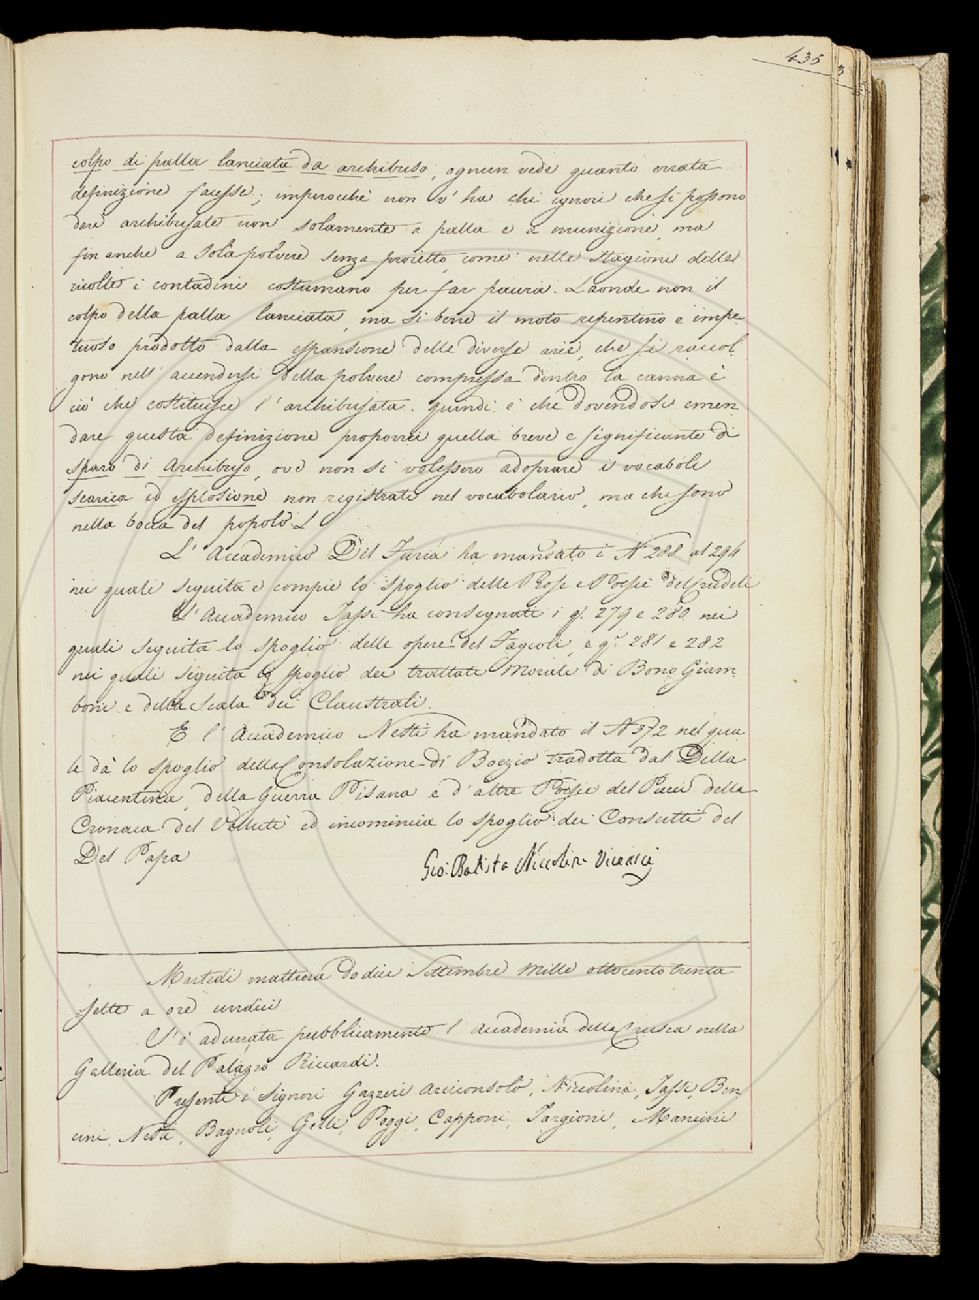 435
3
colpo di palla lanciata da archibuso, ognun vede quanto errata
definizione facesse; imperocchè non v'ha chi ignori che si possono
dare archibusate non solamente a palla e a munizione, ma
fin anche a sola polvere senza proietto, come nelle stagioni delle
ricolte i contadini costumano per far paura. Laonde non il
colpo della palla lanciata, ma si bene il moto repentino e impe-
tuoso prodotto dalla espansione delle diverse arie, che si raccol-
gono nell'accendersi della polvere compressa dentro la canna è
ciò che costituisce l'archibusata. Quindi è che dovendosi emen-
dare questa definizione proporrei quella breve e significante di
sparo di Archibuso, ove non si volessero adoprare i vocaboli
scarica ed esplosione non registrati nel vocabolario, ma che sono
nella bocca del popolo.
L'Accademico Del Furia ha mandato i N. 288 al 294
nei quali seguita e compie lo spoglio delle Prose e Poesie del Crudeli
L'Accademico Tassi ha consegnati i q.i 279 e 280 nei
quali seguita lo spoglio delle opere del Fagioli, e q.i 281 e 282
nei quali seguita lo spoglio dei trattati Morali di Bono Giam-
boni e della Scala dei Claustrali.
E l'Accademico Nesti ha mandato il N. 372 nel qua-
le dà lo spoglio della Consolazione di Boezio tradotta dal Della
Piacentina, della Guerra Pisana e d'altre Poesie del Pucci della
Cronaca del Velluti ed incomincia lo spoglio dei Consulti del
Del Papa
Gio: Batista Niccolini Vice Seg.
Martedì mattina dodici Settembre mille ottocento trenta
sette a ore undici
S'è adunata pubblicamente l'Accademia della Crusca nella
Galleria del Palazzo Riccardi.
Presenti i Signori Gazzeri Arciconsolo, Niccolini, Tassi, Ben-
cini, Nesti, Bagnoli, Gelli, Poggi, Capponi, Targioni, Mancini